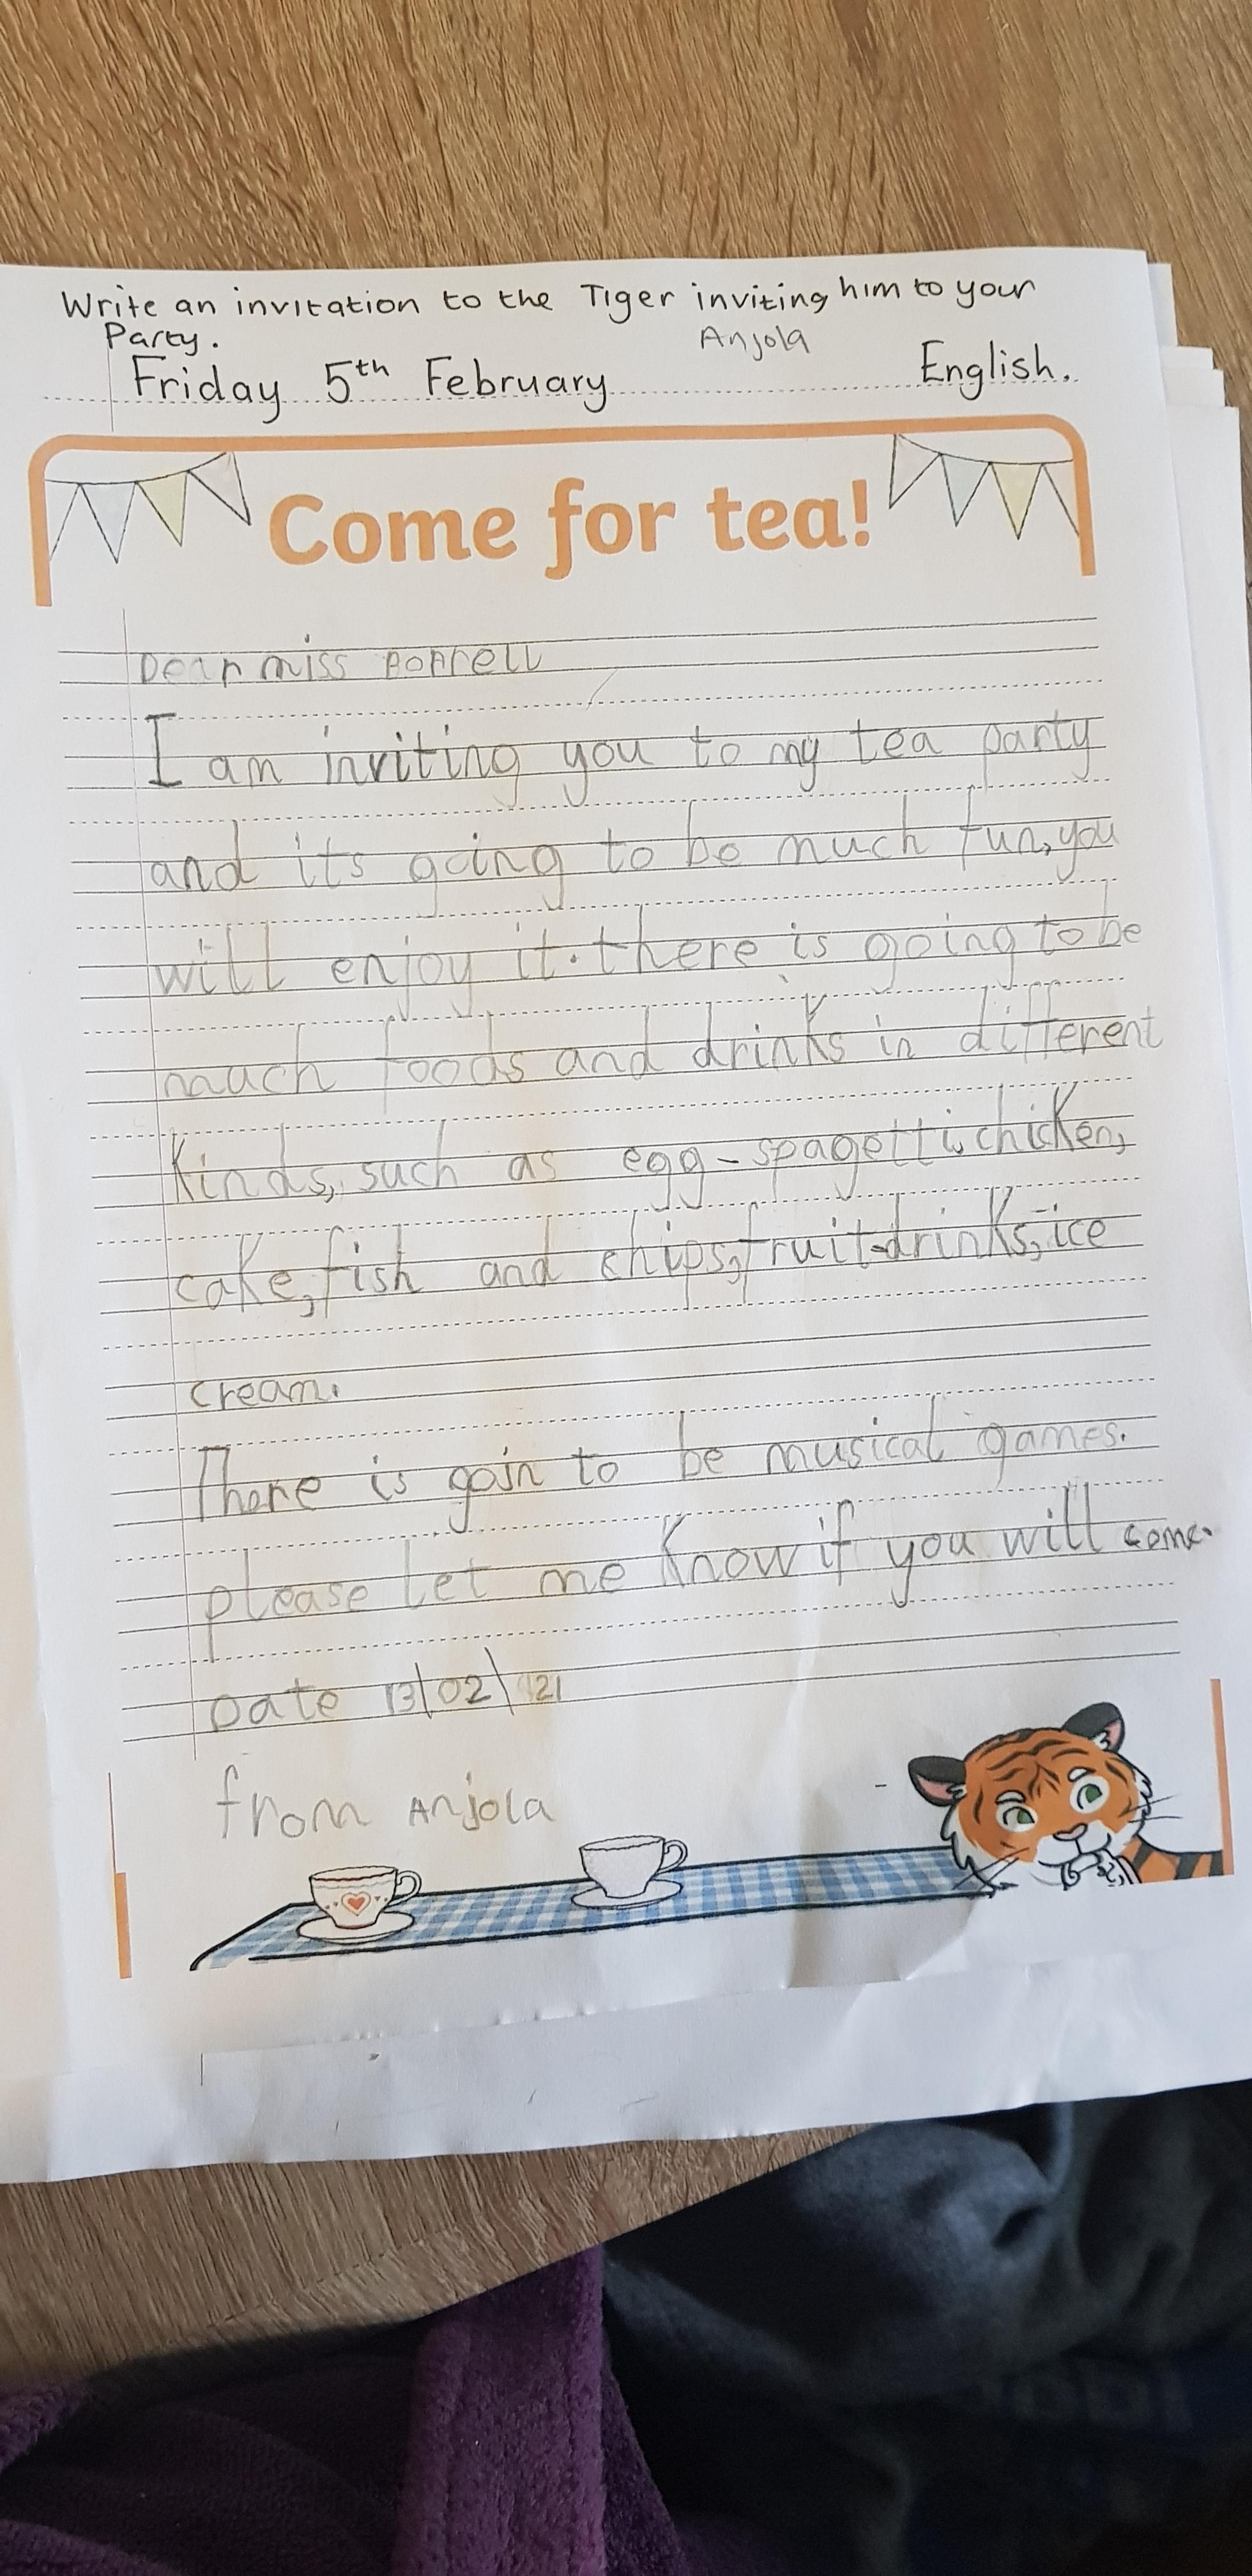 Write an invitation to the Tiger inviting him to your
Party.
Anjola
Friday 5th February
English.
Come for tea!
Dear miss
I am inviting you to my tea party
and its going to be much fun, you
will enjoy it. there is going to be
much foods and drinks in different
Kinds, such as egg-spagetti, chicken,
cake, fish and chips, fruit-drinks, ice
cream.
There is goin to be musical games.
please let me Know if you will come.
Date 13/02\21
from Anjola